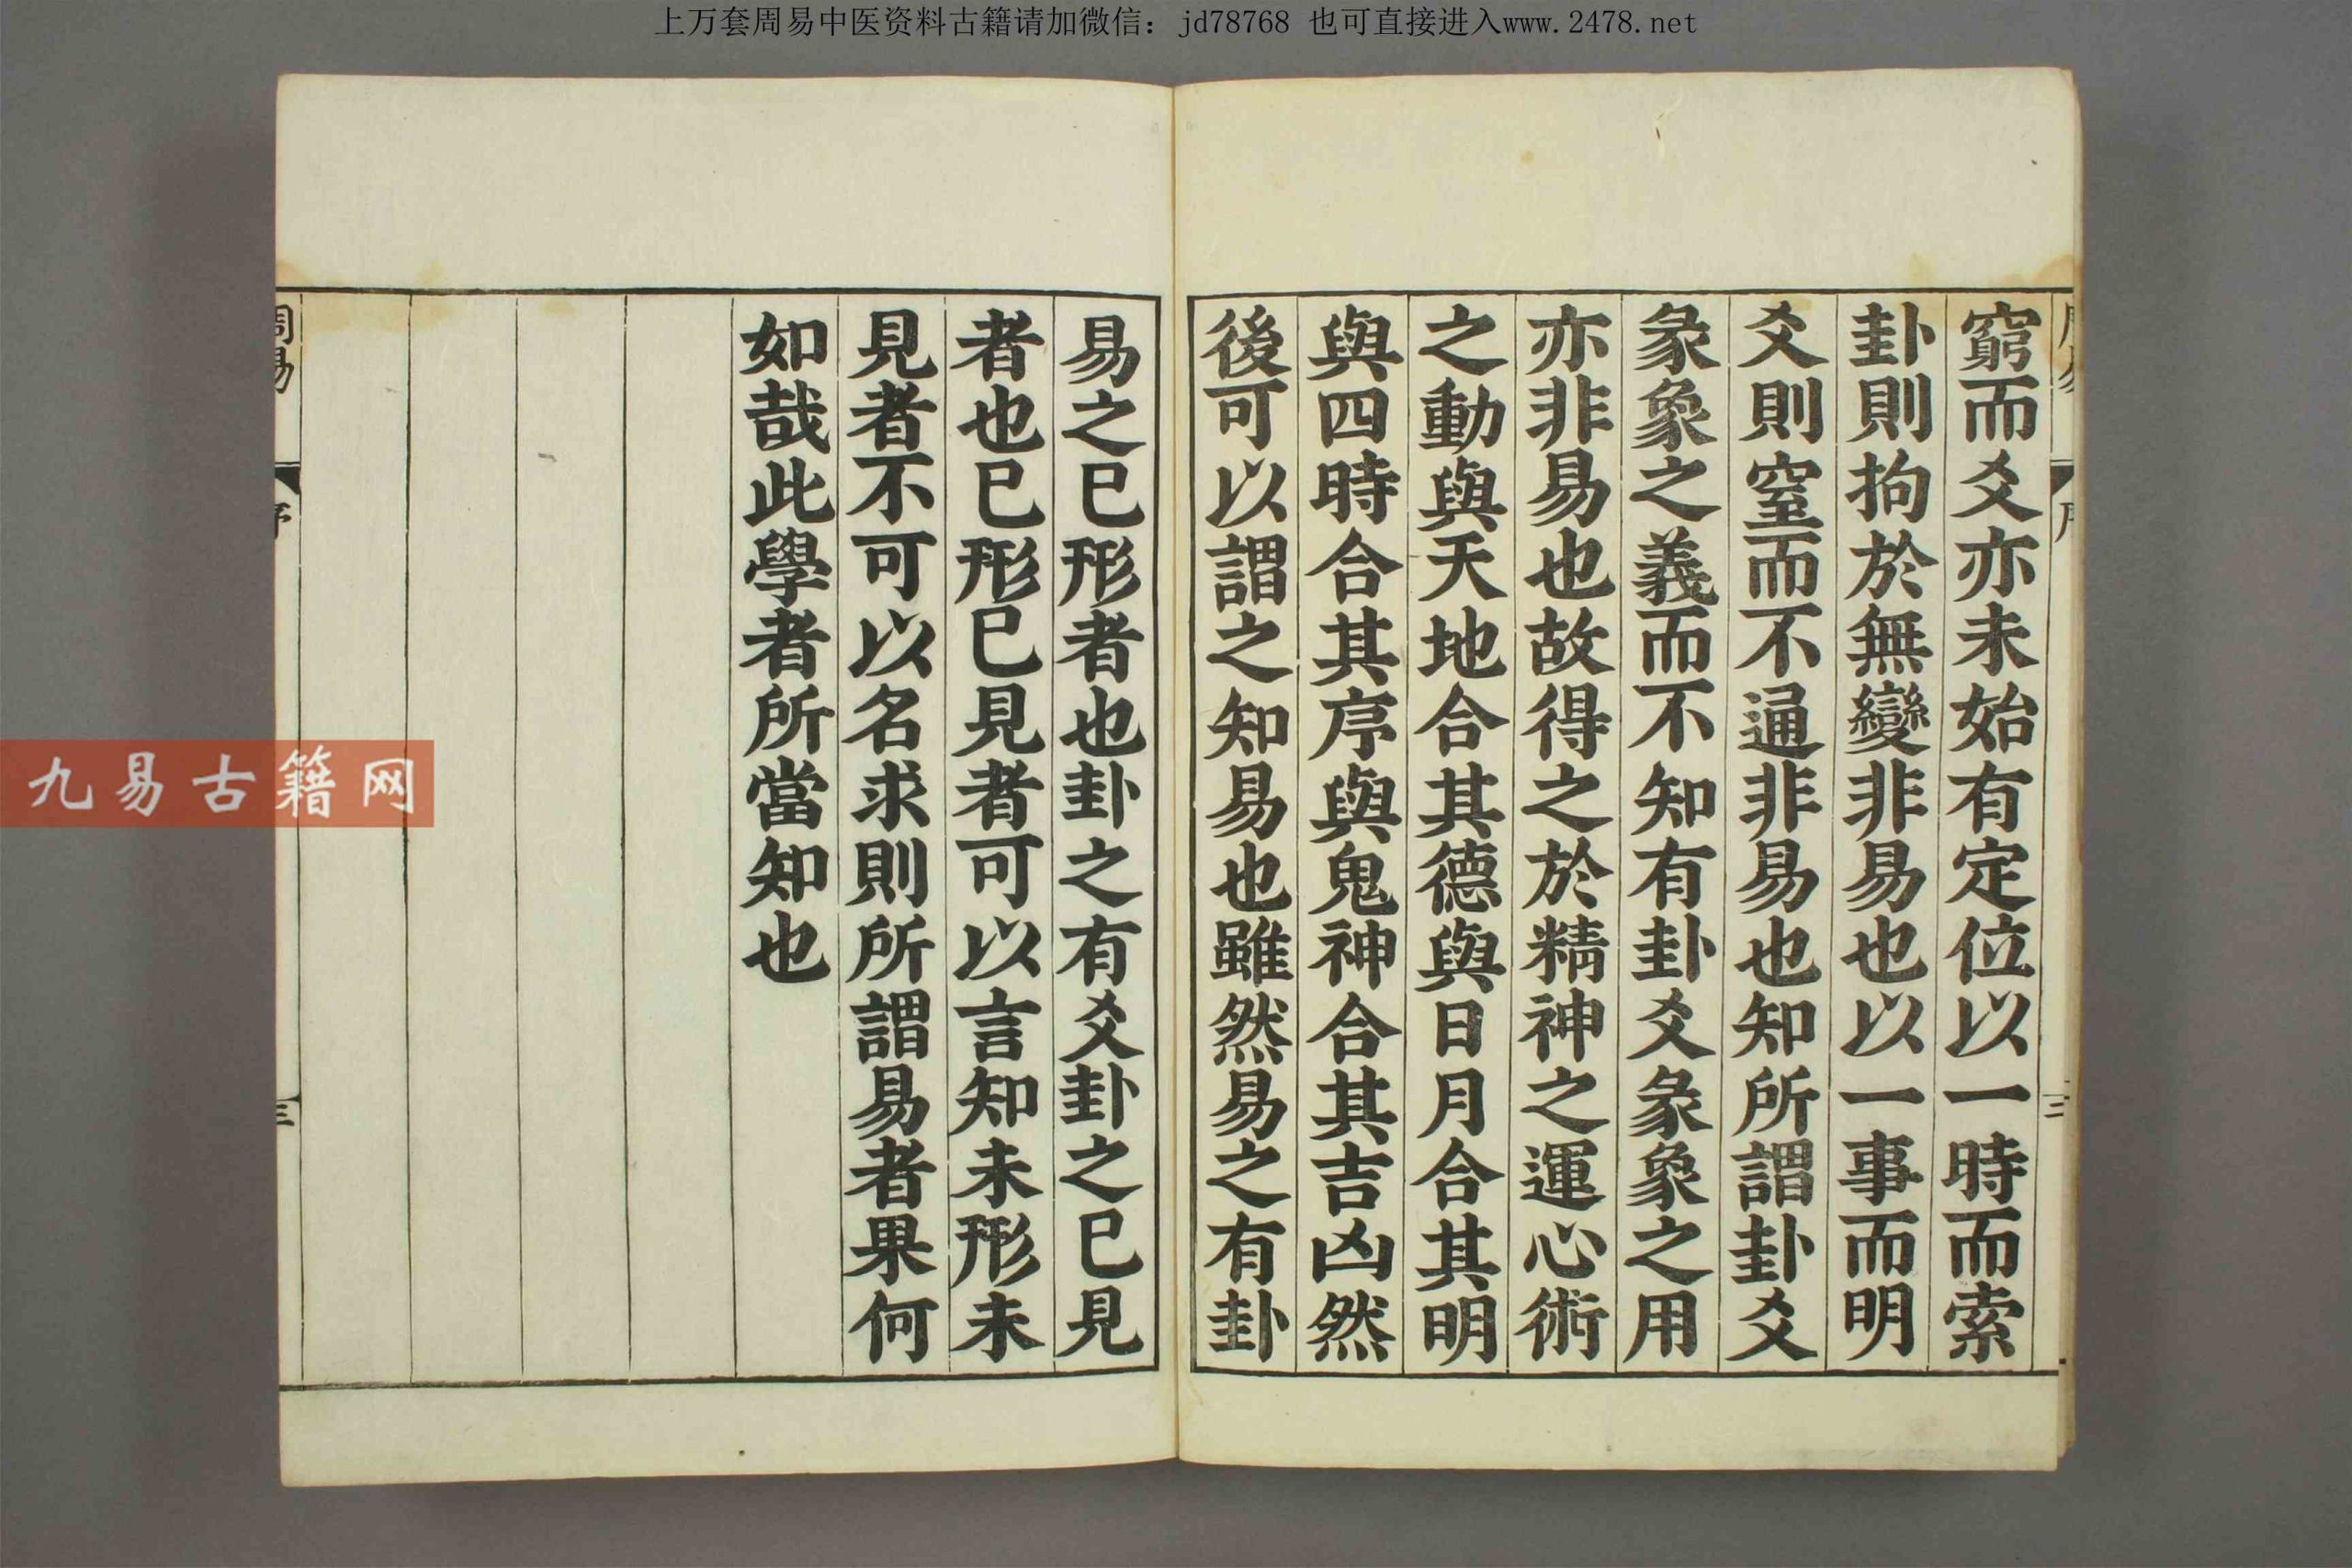 上万套周易中医资料古籍请加微信：jd78768 也可直接进入www.2478.net
窮而爻亦未始有定位以一時而索
卦則拘於無變非易也以一事而明
爻則窒而不通非易也知所謂卦爻
彖象之義而不知有卦爻彖象之用
亦非易也故得之於精神之運心術
之動與天地合其德與日月合其明
與四時合其序與鬼神合其吉凶然
後可以謂之知易也雖然易之有卦
易之已形者也卦之有爻卦之已見
者也已形已見者可以言知未形未
見者不可以名求則所謂易者果何
如哉此學者所當知也
周易
序
三
九易古籍网